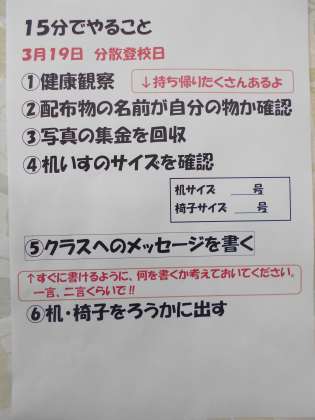 15分でやること
3月19日 分散登校日
①健康観察
↓持ち帰りたくさんあるよ
②配布物の名前が自分の物か確認
③写真の集金を回収
④机いすのサイズを確認
机サイズ ____号
椅子サイズ ____号
⑤クラスへのメッセージを書く
↑すぐに書けるように、何を書くか考えておいてください。
一言、二言くらいで!!
⑥机・椅子をろうかに出す